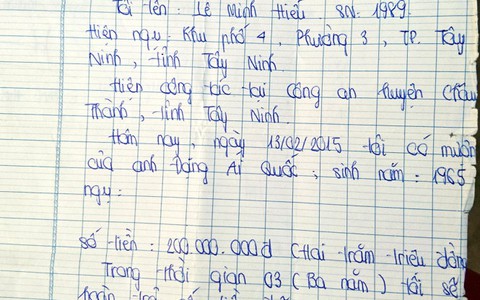 Tôi tên : Lê Minh Hiếu SN: 1989
Hiện ngụ : Khu phố 4 , Phường 3 , TP. Tây
Ninh , tỉnh Tây Ninh.
Hiện công tác tại công an huyện Châu
Thành , tỉnh Tây Ninh.
Hôm nay , ngày 13/02/2015 tôi có mượn
của anh Đặng Ái Quốc , sinh năm : 1965
ngụ :
số tiền : 200.000.000đ (Hai trăm triệu đồng
Trong thời gian 03 (Ba năm) tôi sẽ
hoàn trả số tiền